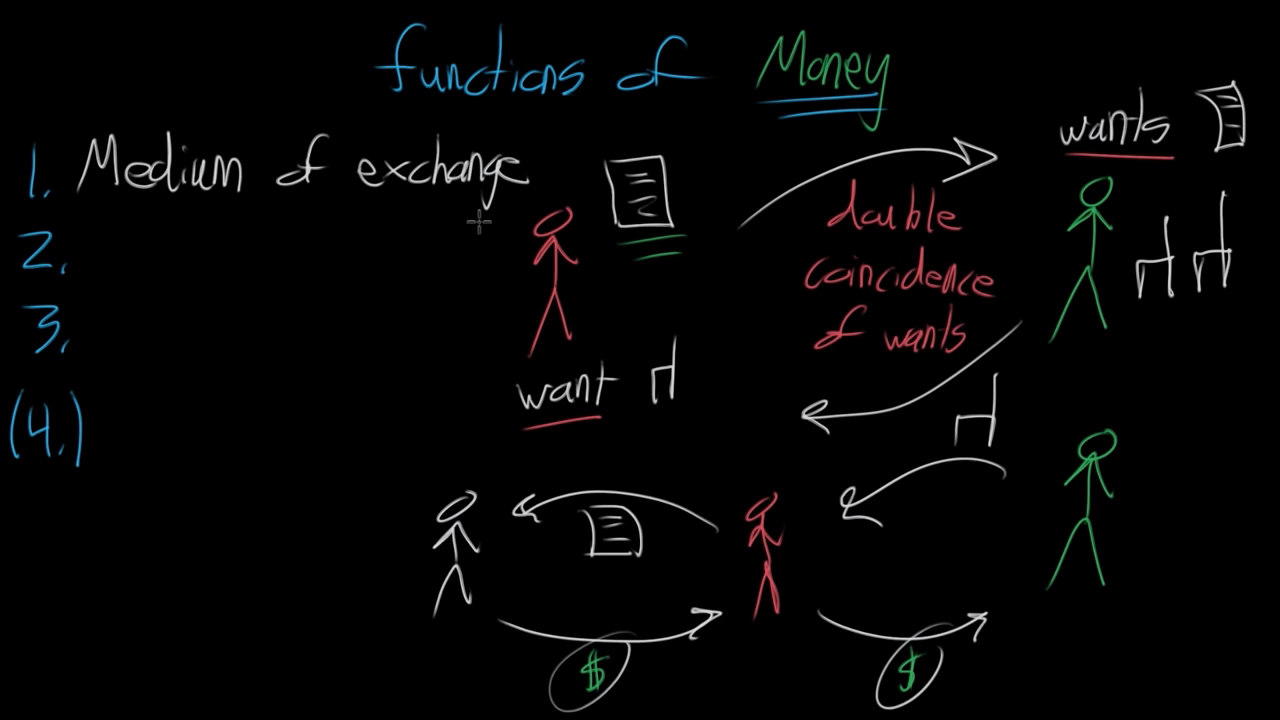 functions of Money
1. Medium of exchange
2.
3.
(4.)
wants
double
coincidence
of wants
want
$
$